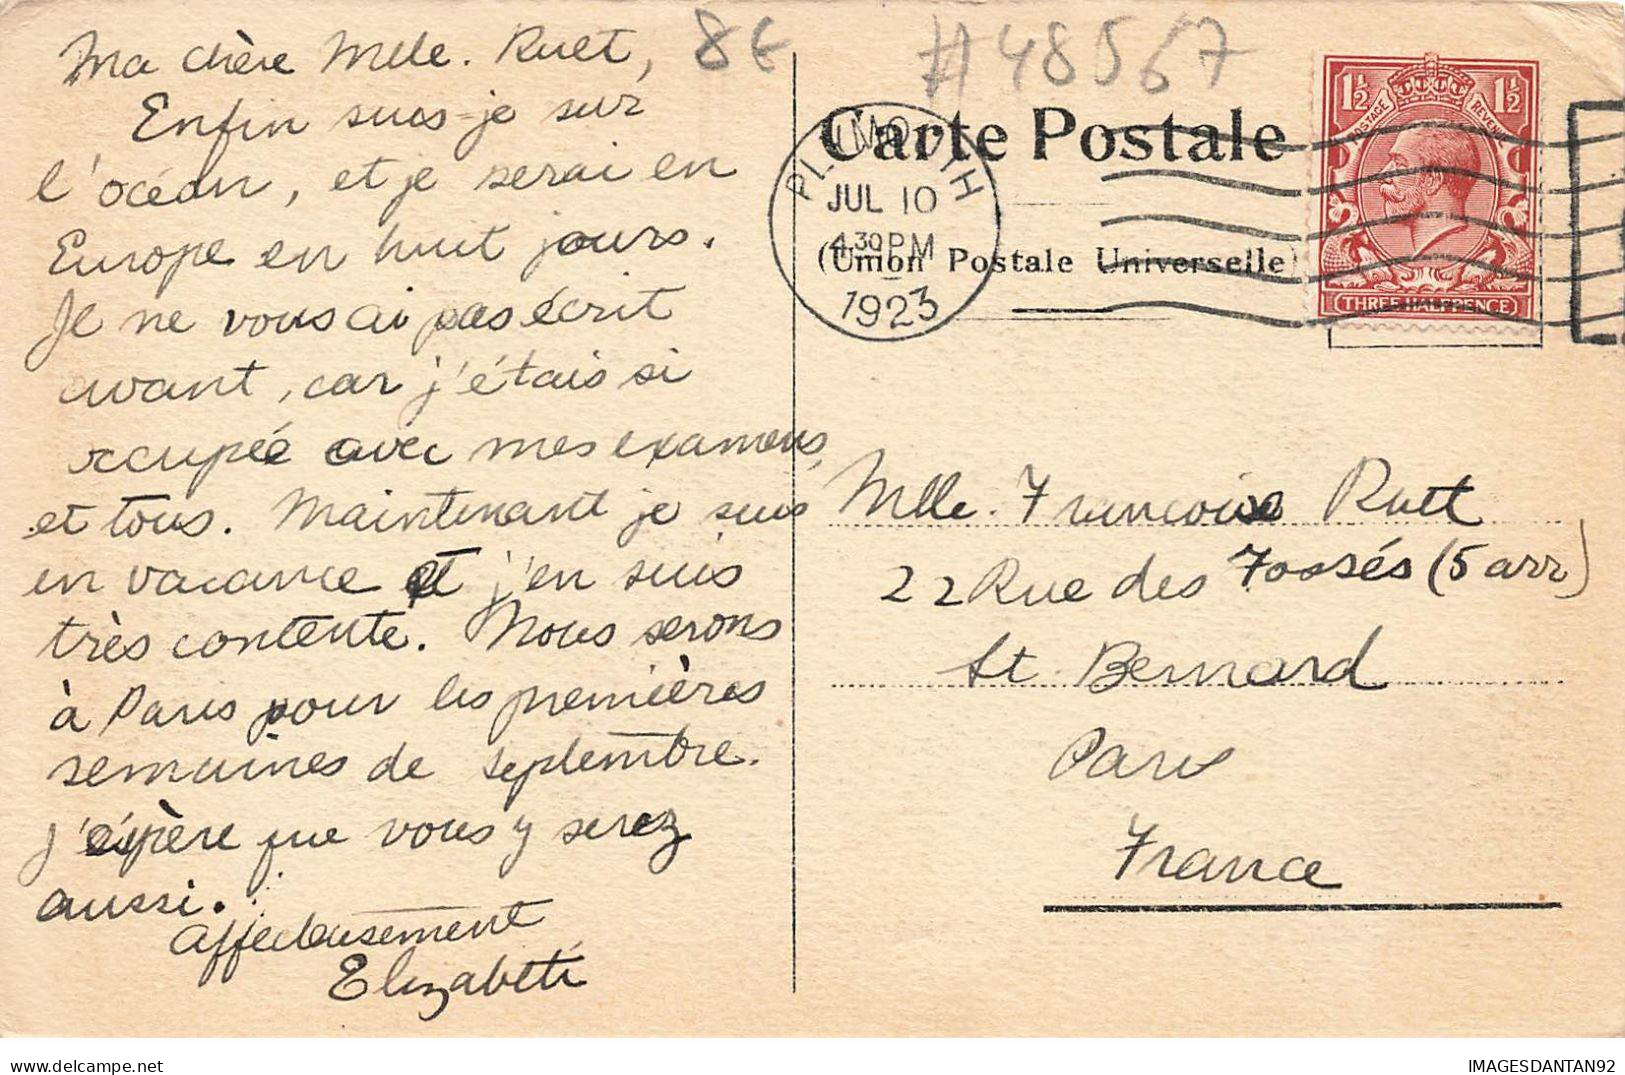 Ma chère Mlle. Ruet,
Enfin suis-je sur
l'océan, et je serai en
Europe en huit jours.
Je ne vous ai pas écrit
avant, car j'étais si
occupée avec mes examens,
et tous. Maintenant je suis
en vacance et j'en suis
très contente. Nous serons
à Paris pour les premières
semaines de septembre.
J'espère que vous y serez
aussi.
Affectueusement
Elizabeth
8€
#48567
Carte Postale
(Union Postale Universelle)
PLYMOUTH
JUL 10
4.30PM
1923
1½ 1½
POSTAGE REVENUE
THREE HALFPENCE
Mlle. Francoise Ruet
22 Rue des Fossés (5 arr)
St Bernard
Paris
France
IMAGESDANTAN92